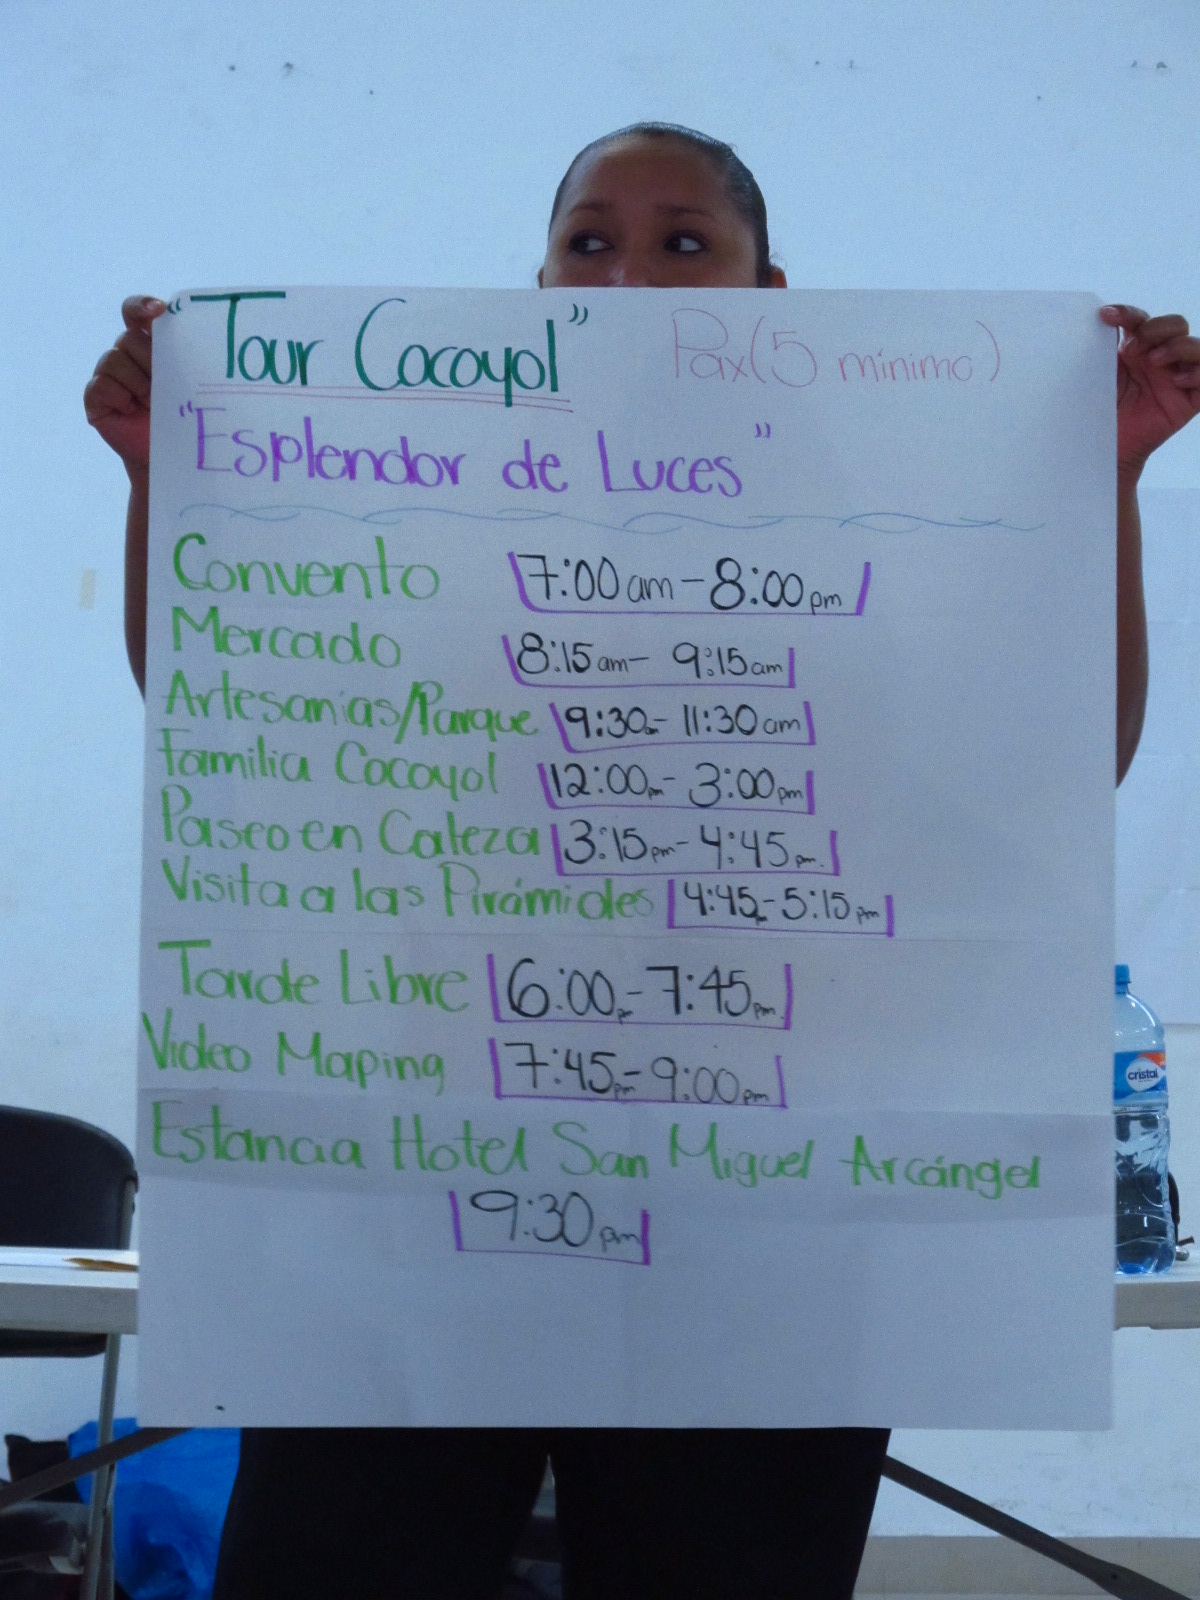 "Tour Cocoyol" Pax(5 mínimo)
"Esplendor de Luces"
Convento 7:00 am - 8:00 pm
Mercado 8:15 am - 9:15 am
Artesanías/Parque 9:30 am - 11:30 am
Familia Cocoyol 12:00 pm - 3:00 pm
Paseo en Caleza 3:15 pm - 4:45 pm.
Visita a las Pirámides 4:45 pm - 5:15 pm
Tarde Libre 6:00 pm - 7:45 pm.
Video Maping 7:45 pm - 9:00 pm
Estancia Hotel San Miguel Arcángel
9:30 pm
cristal